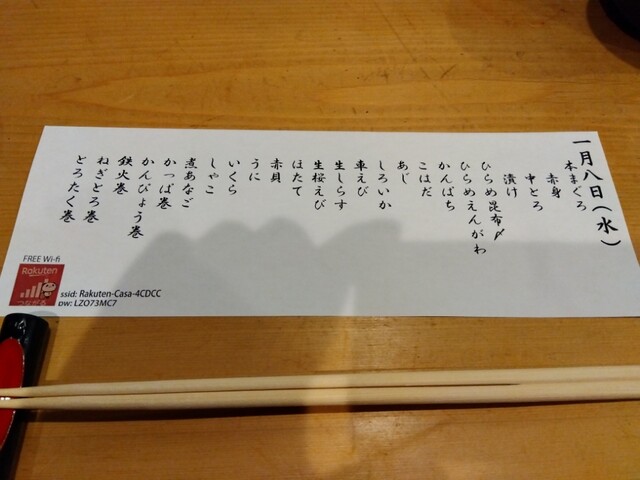 一月八日(水)
本まぐろ
赤身
中とろ
漬け
ひらめ昆布〆
ひらめえんがわ
かんぱち
こはだ
あじ
しろいか
車えび
生しらす
生桜えび
ほたて
赤貝
うに
いくら
しゃこ
煮あなご
かっぱ巻
かんぴょう巻
鉄火巻
ねぎとろ巻
とろたく巻
FREE Wi-fi
Rakuten
つながる
ssid: Rakuten-Casa-4CDCC
pw: LZO73MC7